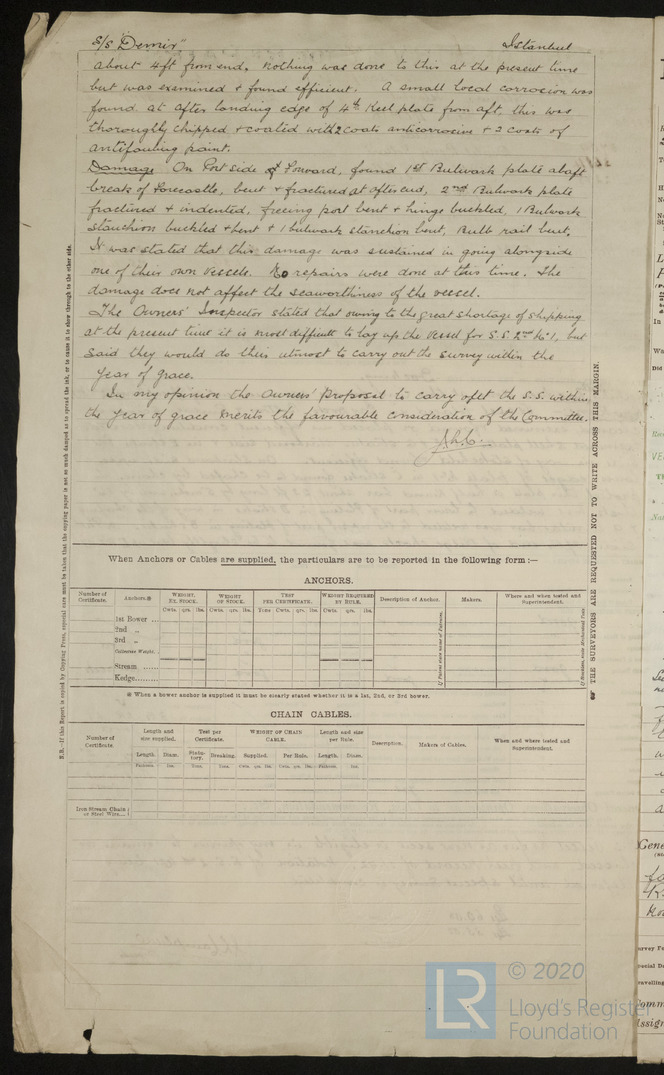 S/S "Demir" Istanbul
about 4ft from end. Nothing was done to this at the present time
but was examined & found efficient. A small local corrosion was
found at after landing edge of 4th Keel plate from aft, this was
thoroughly chipped & coated with 2 coats anticorrosive & 2 coats of
antifouling paint.
Damage On Port side Forward, found 1st Bulwark plate abaft
break of Forecastle, bent & fractured at after end, 2nd Bulwark plate
fractured & indented, freeing port bent & hinge buckled, 1 Bulwark
stanchion buckled & bent & 1 bulwark stanchion bent, Bulb rail bent.
It was stated that this damage was sustained in going alongside
one of their own vessels. No repairs were done at this time. The
damage does not affect the seaworthiness of the vessel.
The Owners' Inspector stated that owing to the great shortage of shipping
at the present time it is most difficult to lay up the Vessel for S.S. 2nd No 1, but
said they would do their utmost to carry out the survey within the
year of grace.
In my opinion the Owners' Proposal to carry out the S.S. within
the year of grace merits the favourable consideration of the Committee.
When Anchors or Cables are supplied, the particulars are to be reported in the following form :—
ANCHORS.
Number of Certificate.
Anchors.*
WEIGHT, EX. STOCK.
WEIGHT OF STOCK.
TEST PER CERTIFICATE.
WEIGHT REQUIRED BY RULE.
Description of Anchor.
Makers.
Where and when tested and Superintendent.
Cwts. qrs. lbs. Cwts. qrs. lbs. Tons Cwts. qrs. lbs. Cwts. qrs. lbs.
1st Bower ...
2nd „
3rd „
Collective Weight.
Stream ......
Kedge........
* When a bower anchor is supplied it must be clearly stated whether it is a 1st, 2nd, or 3rd bower.
CHAIN CABLES.
Number of Certificate.
Length and size supplied.
Test per Certificate.
WEIGHT OF CHAIN CABLE.
Length and size per Rule.
Description.
Makers of Cables.
When and where tested and Superintendent.
Length. Diam. Statutory. Breaking. Supplied. Per Rule. Length. Diam.
Fathoms. Ins. Tons. Tons. Cwt. qrs. lbs. Cwt. qrs. lbs. Fathoms. Ins.
Iron Stream Chain or Steel Wire...
N.B.—If the Report is copied by Copying Press, especial care must be taken that the copying paper is not so much damped as to spread the ink, or to cause it to show through to the other side.
THE SURVEYORS ARE REQUESTED NOT TO WRITE ACROSS THIS MARGIN.
LR
© 2020
Lloyd's Register
Foundation